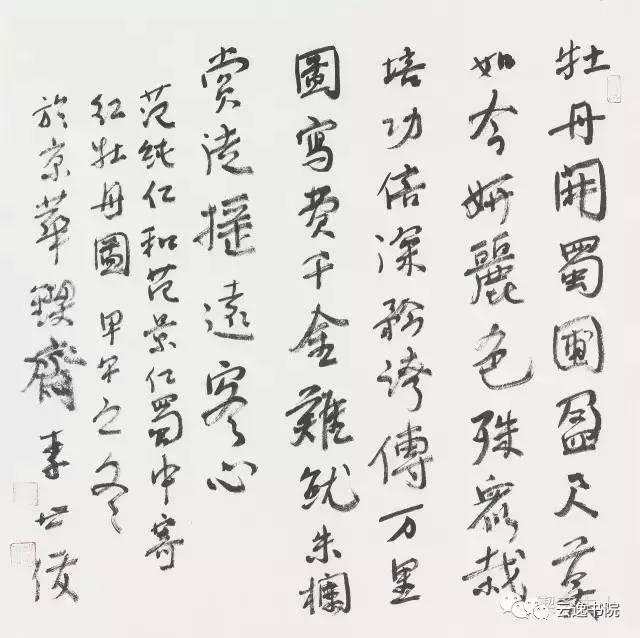 牡丹開蜀圃盈尺莫
如今妍麗色殊衆栽
培功倍深矜誇傳万里
圖寫費千金難就朱欄
賞徒摇遠客心
范純仁和范景仁蜀中寄
紅牡丹圖 甲午之冬
於京華齋 李世俊
云逸书院